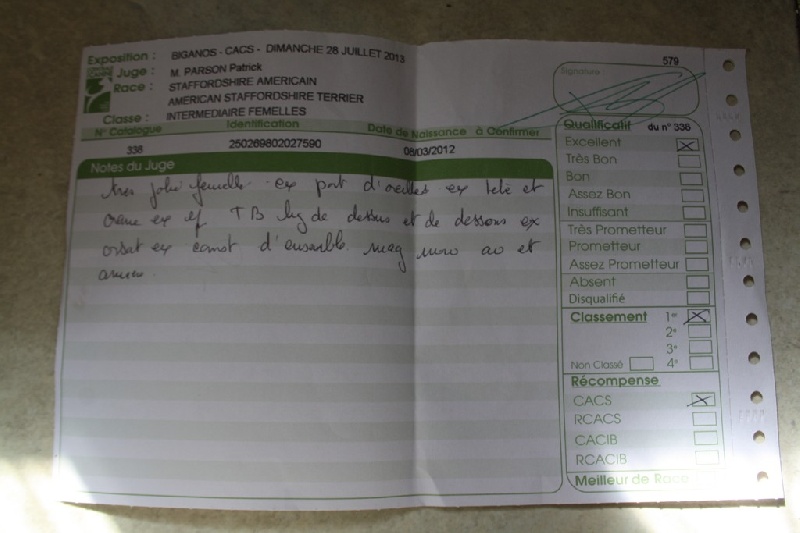 Exposition : BIGANOS - CACS - DIMANCHE 28 JUILLET 2013
Juge : M. PARSON Patrick
Race : STAFFORDSHIRE AMERICAIN
AMERICAN STAFFORDSHIRE TERRIER
Classe : INTERMEDIAIRE FEMELLES
N° Catalogue Identification Date de Naissance à Confirmer
338 250269802027590 08/03/2012
Notes du Juge
très jolie femelle ex port d'oreilles ex tete et
crane ex TB lig de dessus et de dessous ex
ex d'ensemble. et
579
Signature
Qualificatif du n° 338
Excellent
Très Bon
Bon
Assez Bon
Insuffisant
Très Prometteur
Prometteur
Assez Prometteur
Absent
Disqualifié
Classement 1er
2e
3e
Non Classé 4e
Récompense
CACS
RCACS
CACIB
RCACIB
Meilleur de Race